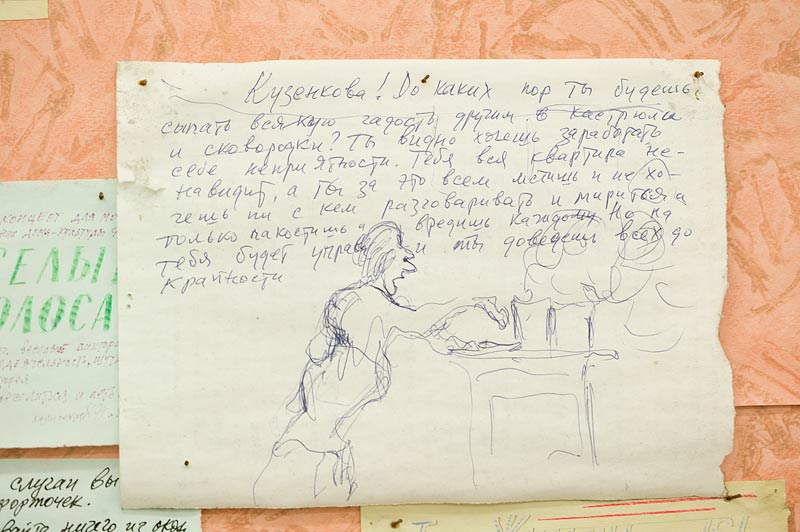 Кузенкова! До каких пор ты будешь
сыпать всякую гадость другим в кастрюли
и сковородки? Ты видно хочешь заработать
себе неприятности. Тебя вся квартира не-
навидит, а ты за это всем мстишь и не хо-
чешь ни с кем разговаривать и мириться а
только пакостишь и вредишь каждому Но на
тебя будет управа и ты доведешь всех до
крайности
концерт для мо
СЕЛЫ
ОЛОСА
случаи вы
форточек.